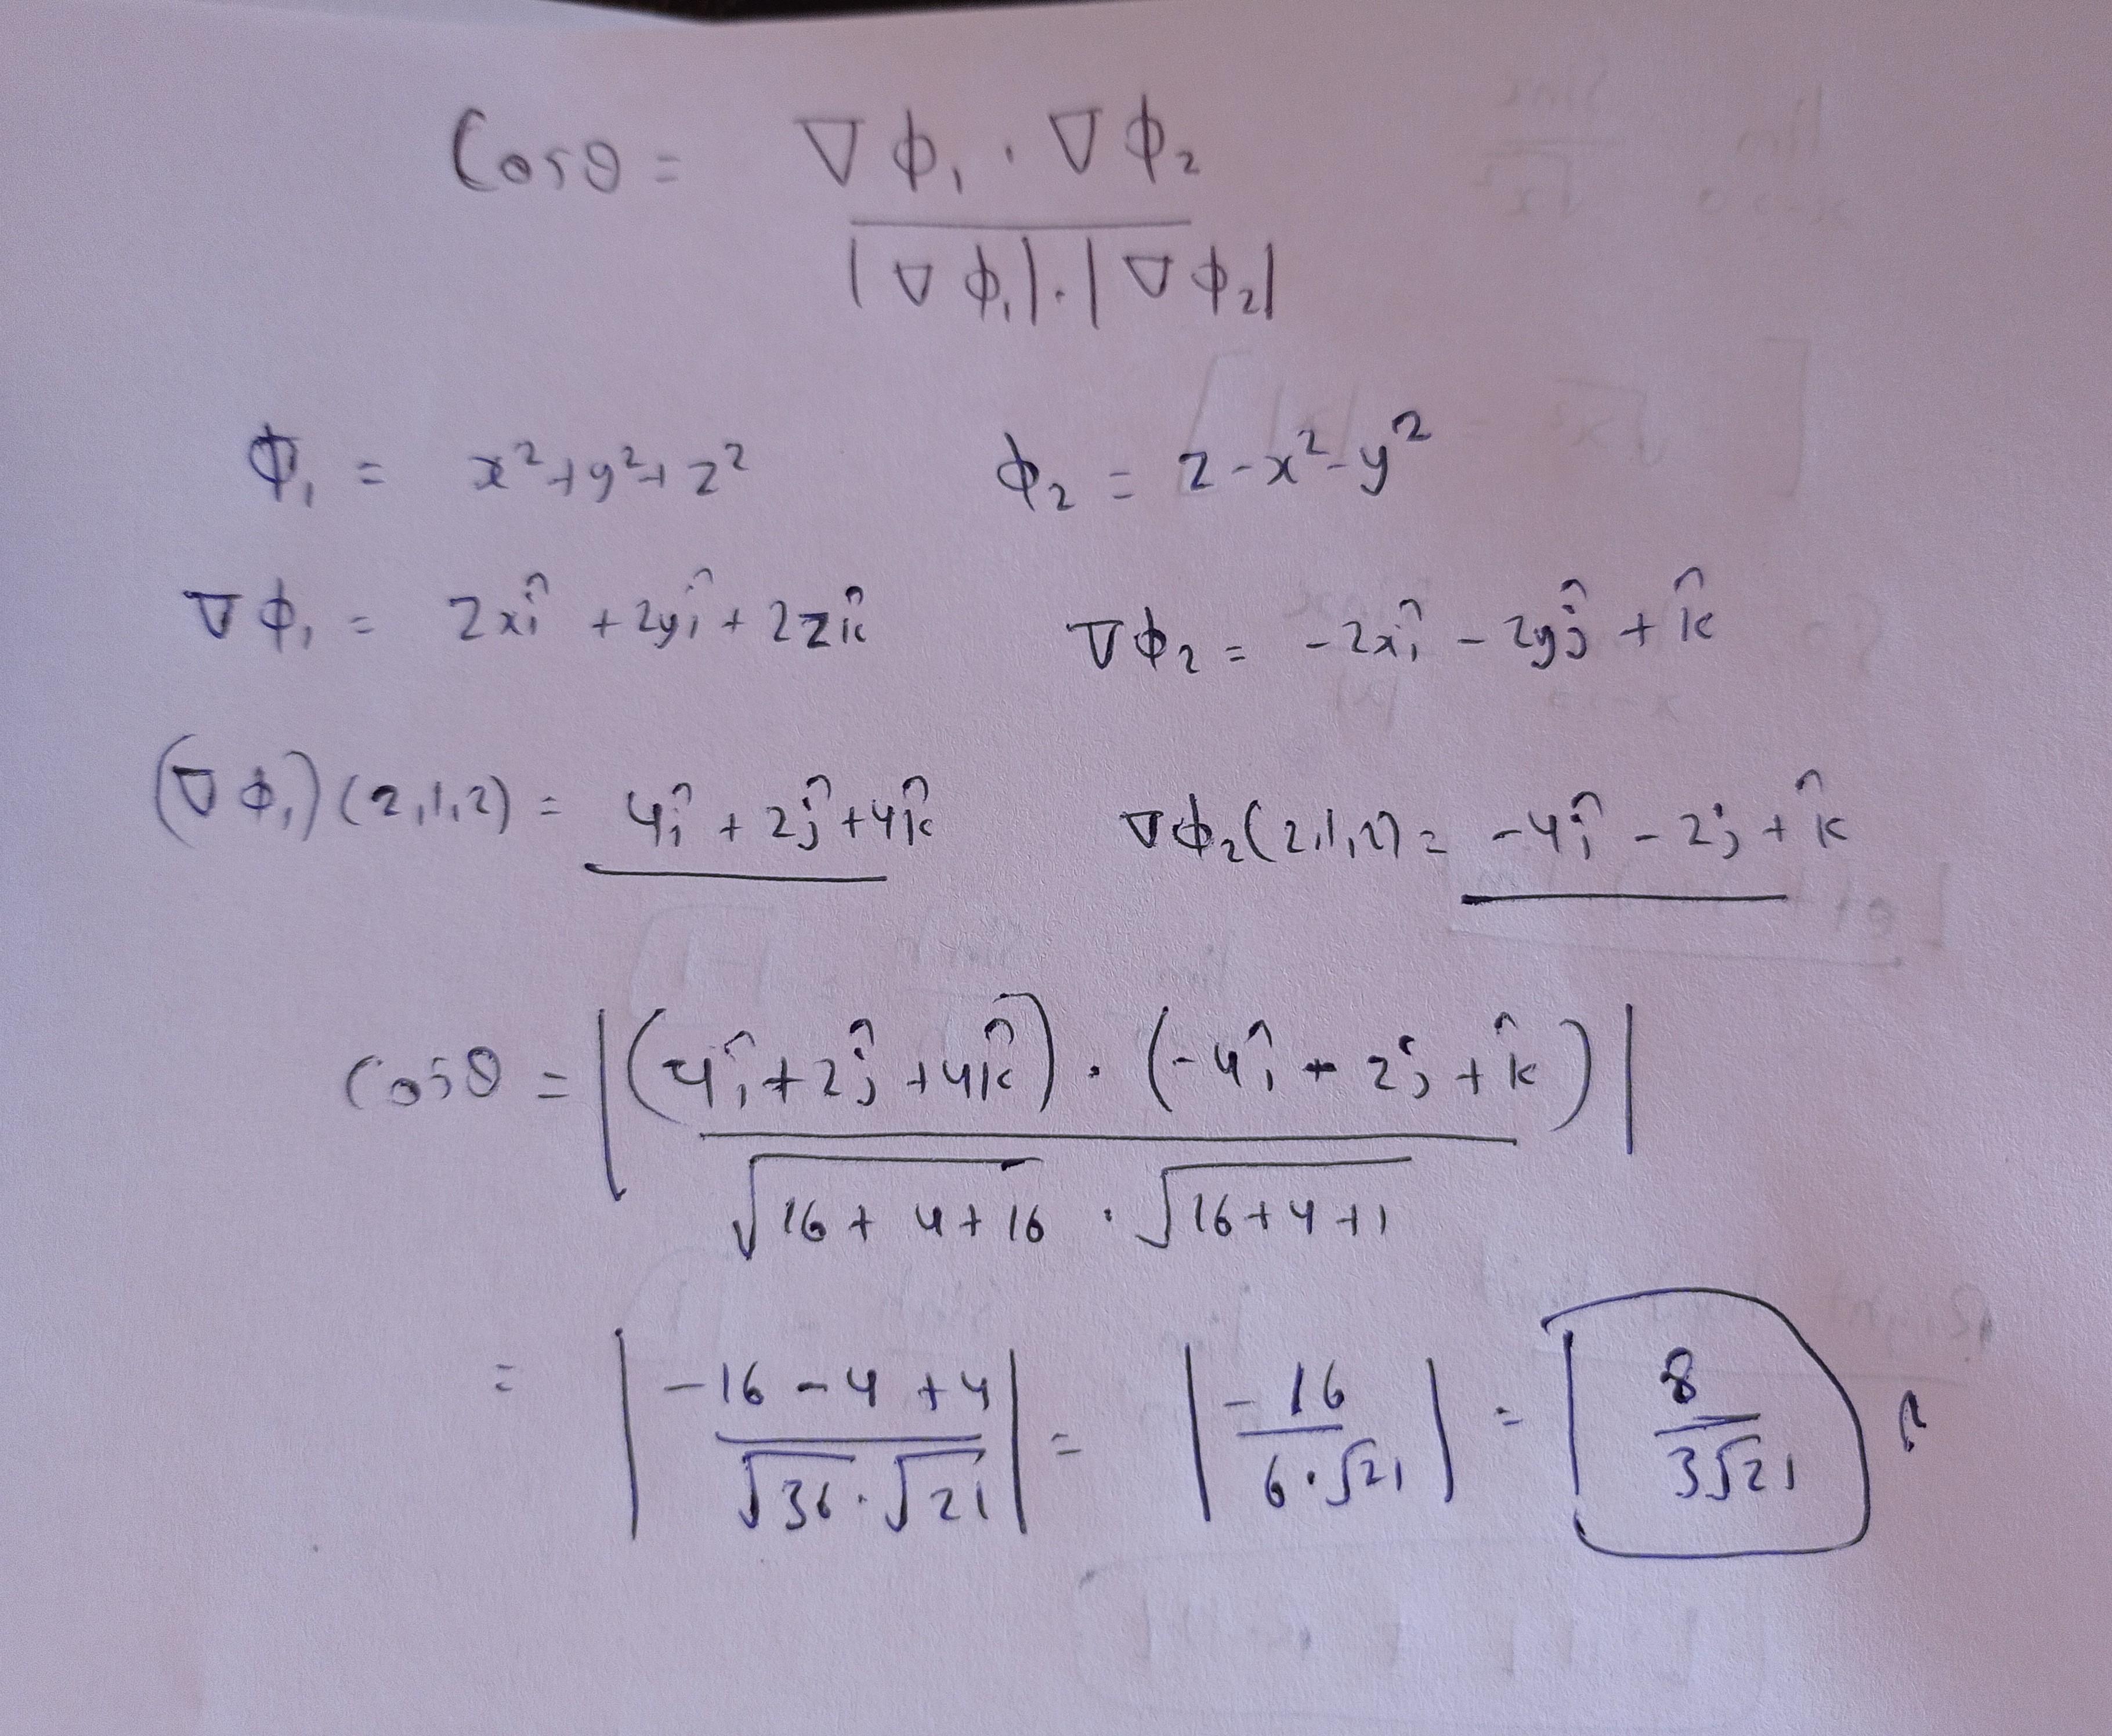 Cosθ = ∇ϕ₁ . ∇ϕ₂ / |∇ϕ₁|.|∇ϕ₂|
ϕ₁ = x²+y²+z² ϕ₂ = z-x²-y²
∇ϕ₁ = 2xî + 2yĵ + 2zk̂ ∇ϕ₂ = -2xî - 2yĵ + k̂
(∇ϕ₁)(2,1,2) = 4î + 2ĵ + 4k̂ ∇ϕ₂(2,1,2) = -4î - 2j + k̂
Cosθ = |(4î+2ĵ+4k̂) . (-4î - 2j + k̂) / √16+4+16 . √16+4+1|
= |-16-4+4 / √36.√21| = |-16 / 6.√21| = 8 / 3√21